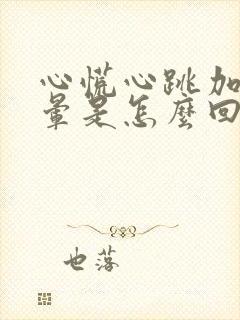 心慌心跳加
暈是怎麼回
也落